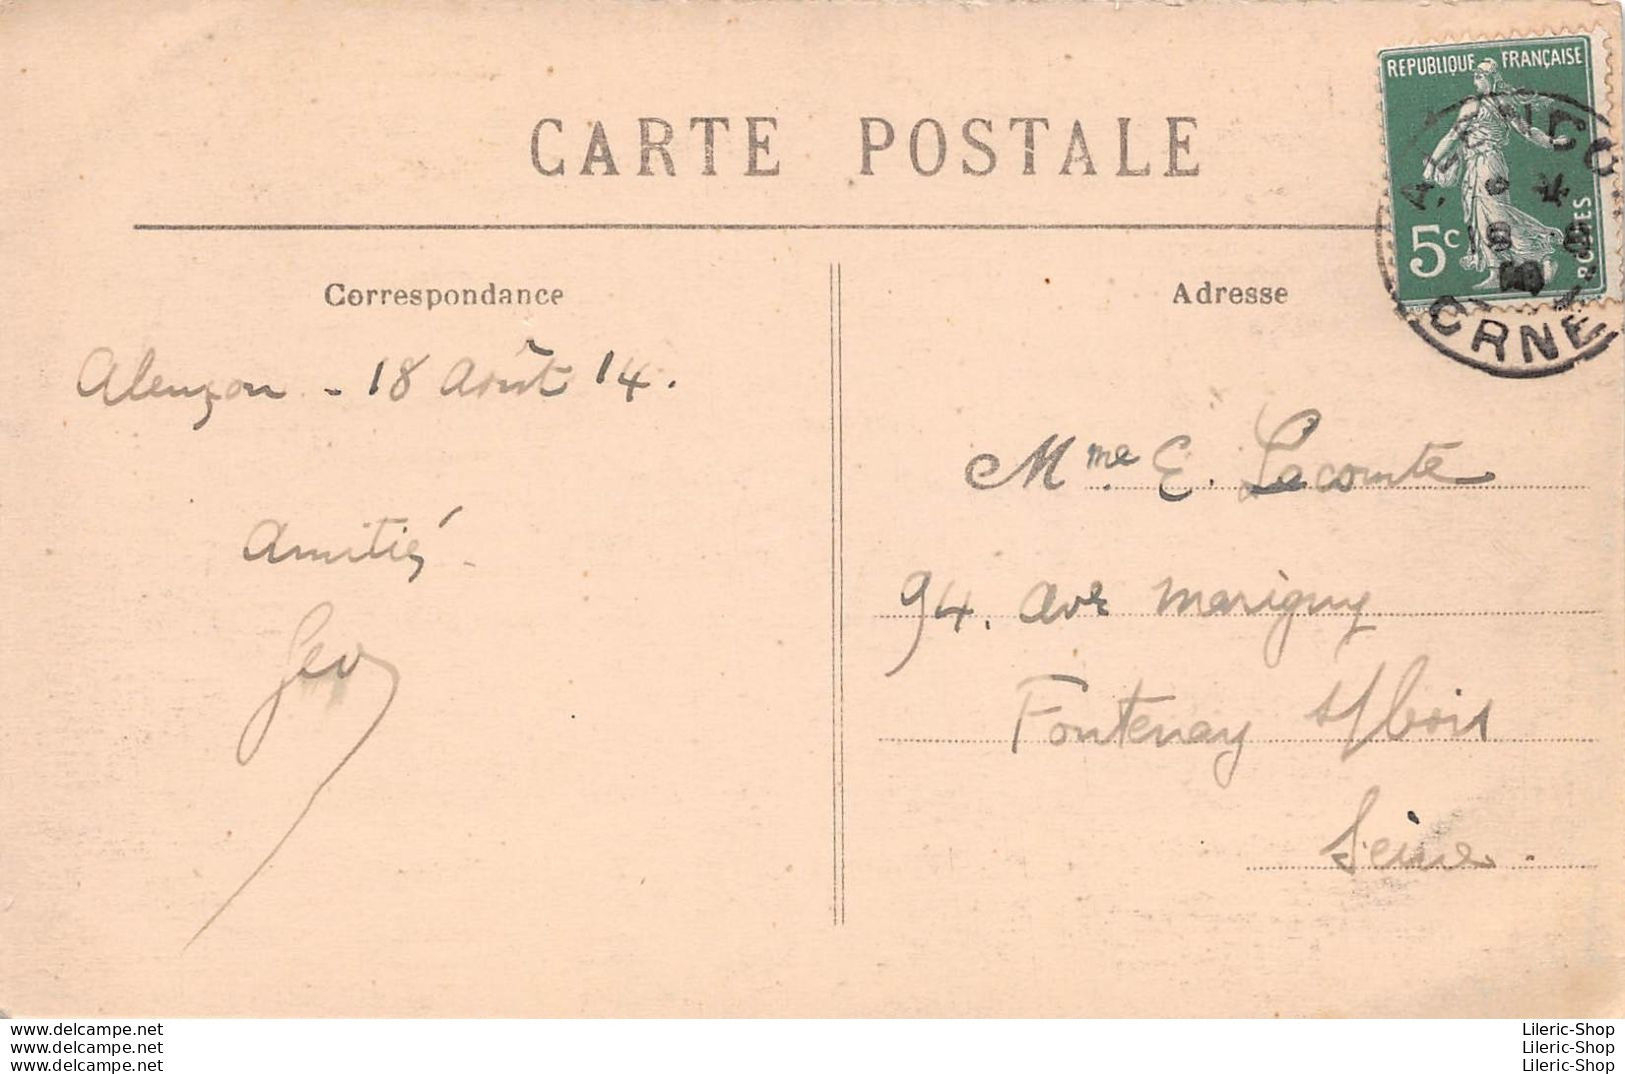 CARTE POSTALE
REPUBLIQUE FRANÇAISE
5c
POSTES
ALENCO
ORNE
Correspondance
Alençon - 18 Août 14.
Amitiés
Geo
Adresse
Mme. E. Lacomte
94. Ave Marigny
Fontenay s/bois
Seine.
www.delcampe.net
www.delcampe.net
www.delcampe.net
Lileric-Shop
Lileric-Shop
Lileric-Shop